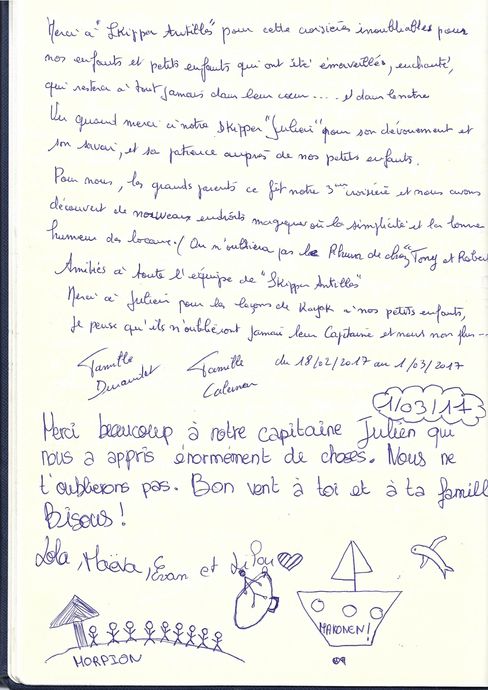 Merci à "Skipper Antilles" pour cette croisières inoubliables pour
nos enfants et petits enfants qui ont été émerveillés, enchanté,
qui restera à tout jamais dans leur cœur .... et dans le notre
Un grand merci à notre skipper "Julien" pour son dévouement et
son savoir, et sa patience auprès de nos petits enfants.
Pour nous, les grands parents ce fût notre 3ème croisière et nous avons
découvert de nouveaux endroits magique où la simplicité et la bonne
humeur des locaux. (On n'oubliera pas le Rhum de chez Tony et Robert
Amitiés à toute l'équipe de "Skipper Antilles"
Merci à Julien pour les leçons de Kayak à nos petits enfants,
Je pense qu'ils n'oublieront jamais leur Capitaine et nous non plus --
Famille Famille du 18/02/2017 au 1/03/2017
1/03/17
Merci beaucoup à notre capitaine Julien qui
nous a appris énormément de choses. Nous ne
t'oublierons pas. Bon vent à toi et à ta famill
Bisous !
Lola, Maëva, Evan et Lilou
MAKONEN!
MORPION